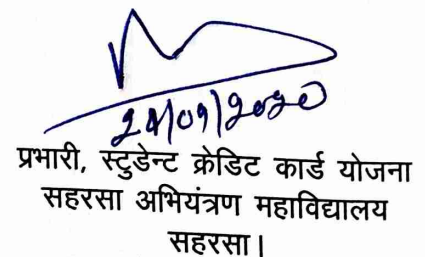 24/09/2020
प्रभारी, स्टुडेन्ट क्रेडिट कार्ड योजना
सहरसा अभियंत्रण महाविद्यालय
सहरसा।